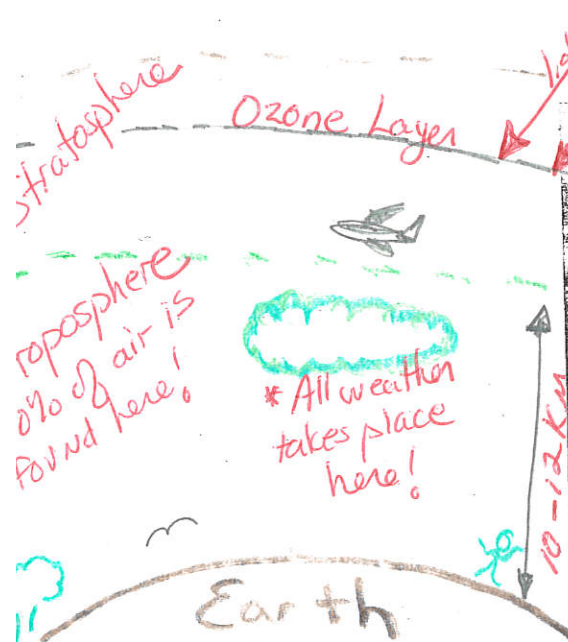 Stratosphere
Ozone Layer
roposphere
0% of air is
found here!
* All weather
takes place
here!
10-12 KM
Earth